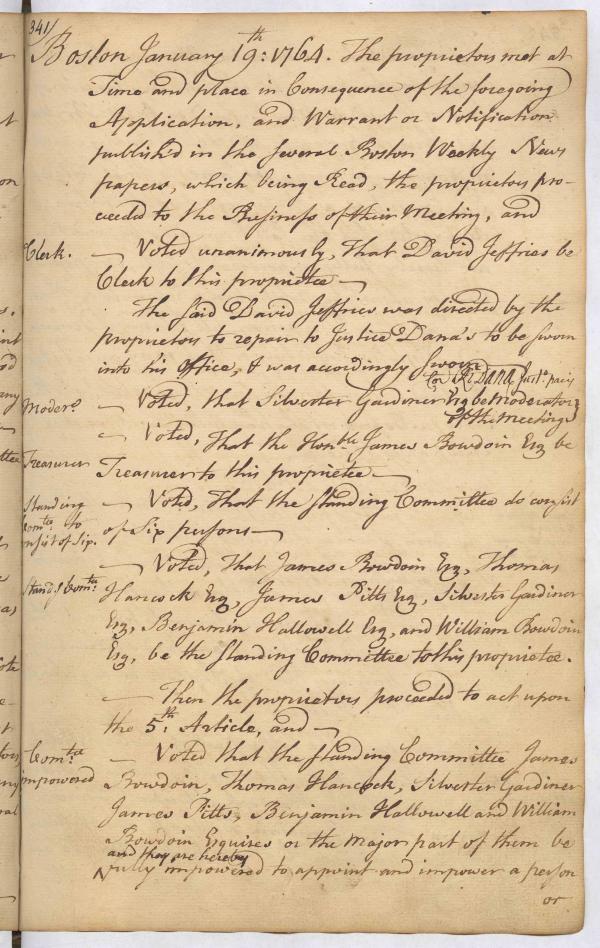 341/
Boston January 19th: 1764. The proprietors met at
Time and place in Consequence of the foregoing
Application, and Warrant or Notification
publish'd in the several Boston Weekly News
papers, which being Read, the proprietors pro-
ceeded to the Business of their Meeting, and
Clerk. — Voted unanimously, That David Jeffries be
Clerk to this proprietee —
The said David Jeffries was directed by the
proprietors to repair to Justice Dana's to be sworn
into his office, & was accordingly sworn
Cor Ri Dana Just: pacis
Moder.r — Voted, that Silvester Gardiner Esq be Moderator
of the meeting
— Voted, That the Honble James Bowdoin Esq be
Treasurer Treasurer to this proprietee —
Standing — Voted, That the Standing Committee do consist
Comtee to
nsist of Six. of Six persons —
— Voted, That James Bowdoin Esq, Thomas
Stands Comtee Hancock Esq, James Pitts Esq, Silvester Gardiner
Esq, Benjamin Hallowell Esq, and William Bowdoin
Esq, be the Standing Committee to this proprietee.
— Then the proprietors proceeded to act upon
the 5th: Article, and —
Comtee — Voted that the Standing Committee James
impowered Bowdoin, Thomas Hancock, Silvester Gardiner
James Pitts, Benjamin Hallowell and William
Bowdoin Esquires or the Major part of them be
and they are hereby
fully impowered to appoint and impower a person
or